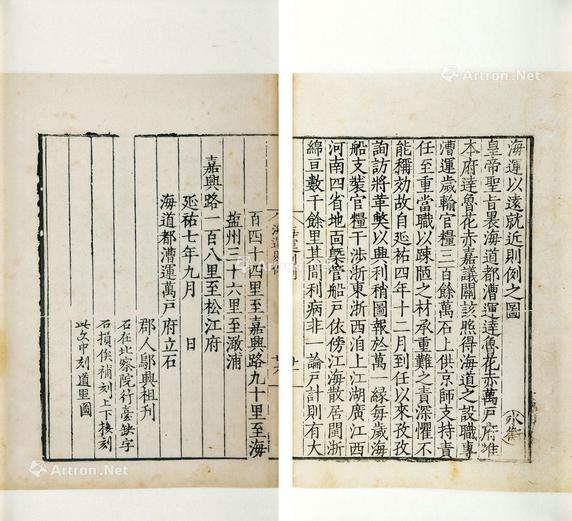 海運以遠就近則例之圖
皇帝聖旨裏海道都漕運達魯花赤萬戶府准
本府達魯花赤嘉議關該照得海道之設職專
漕運歲輸官糧三百餘萬石上供京師支持責
任至重當職以踈陋之材承重難之責深懼不
能稱効故自延祐四年十二月到任以來孜孜
詢訪將革獘以興利稍圖報於萬一緣每歲海
船支裝官糧干涉浙東浙西洎上江湖廣江西
河南四省地面槩管船戶依傍江海散居閩浙
綿亘數千餘里其間利病非一論戶計則有大
百四十四里至嘉興路九十里至海
盐州三十六里至澉浦
嘉興路一百八里至松江府
延祐七年九月　日
海道都漕運萬戶府立石
郡人鄔興祖刊
石在北察院行臺缺字
石損俟補刻上下接刻
此文中刻道里圖
Artron.Net
Artron.Net
Artron.Net